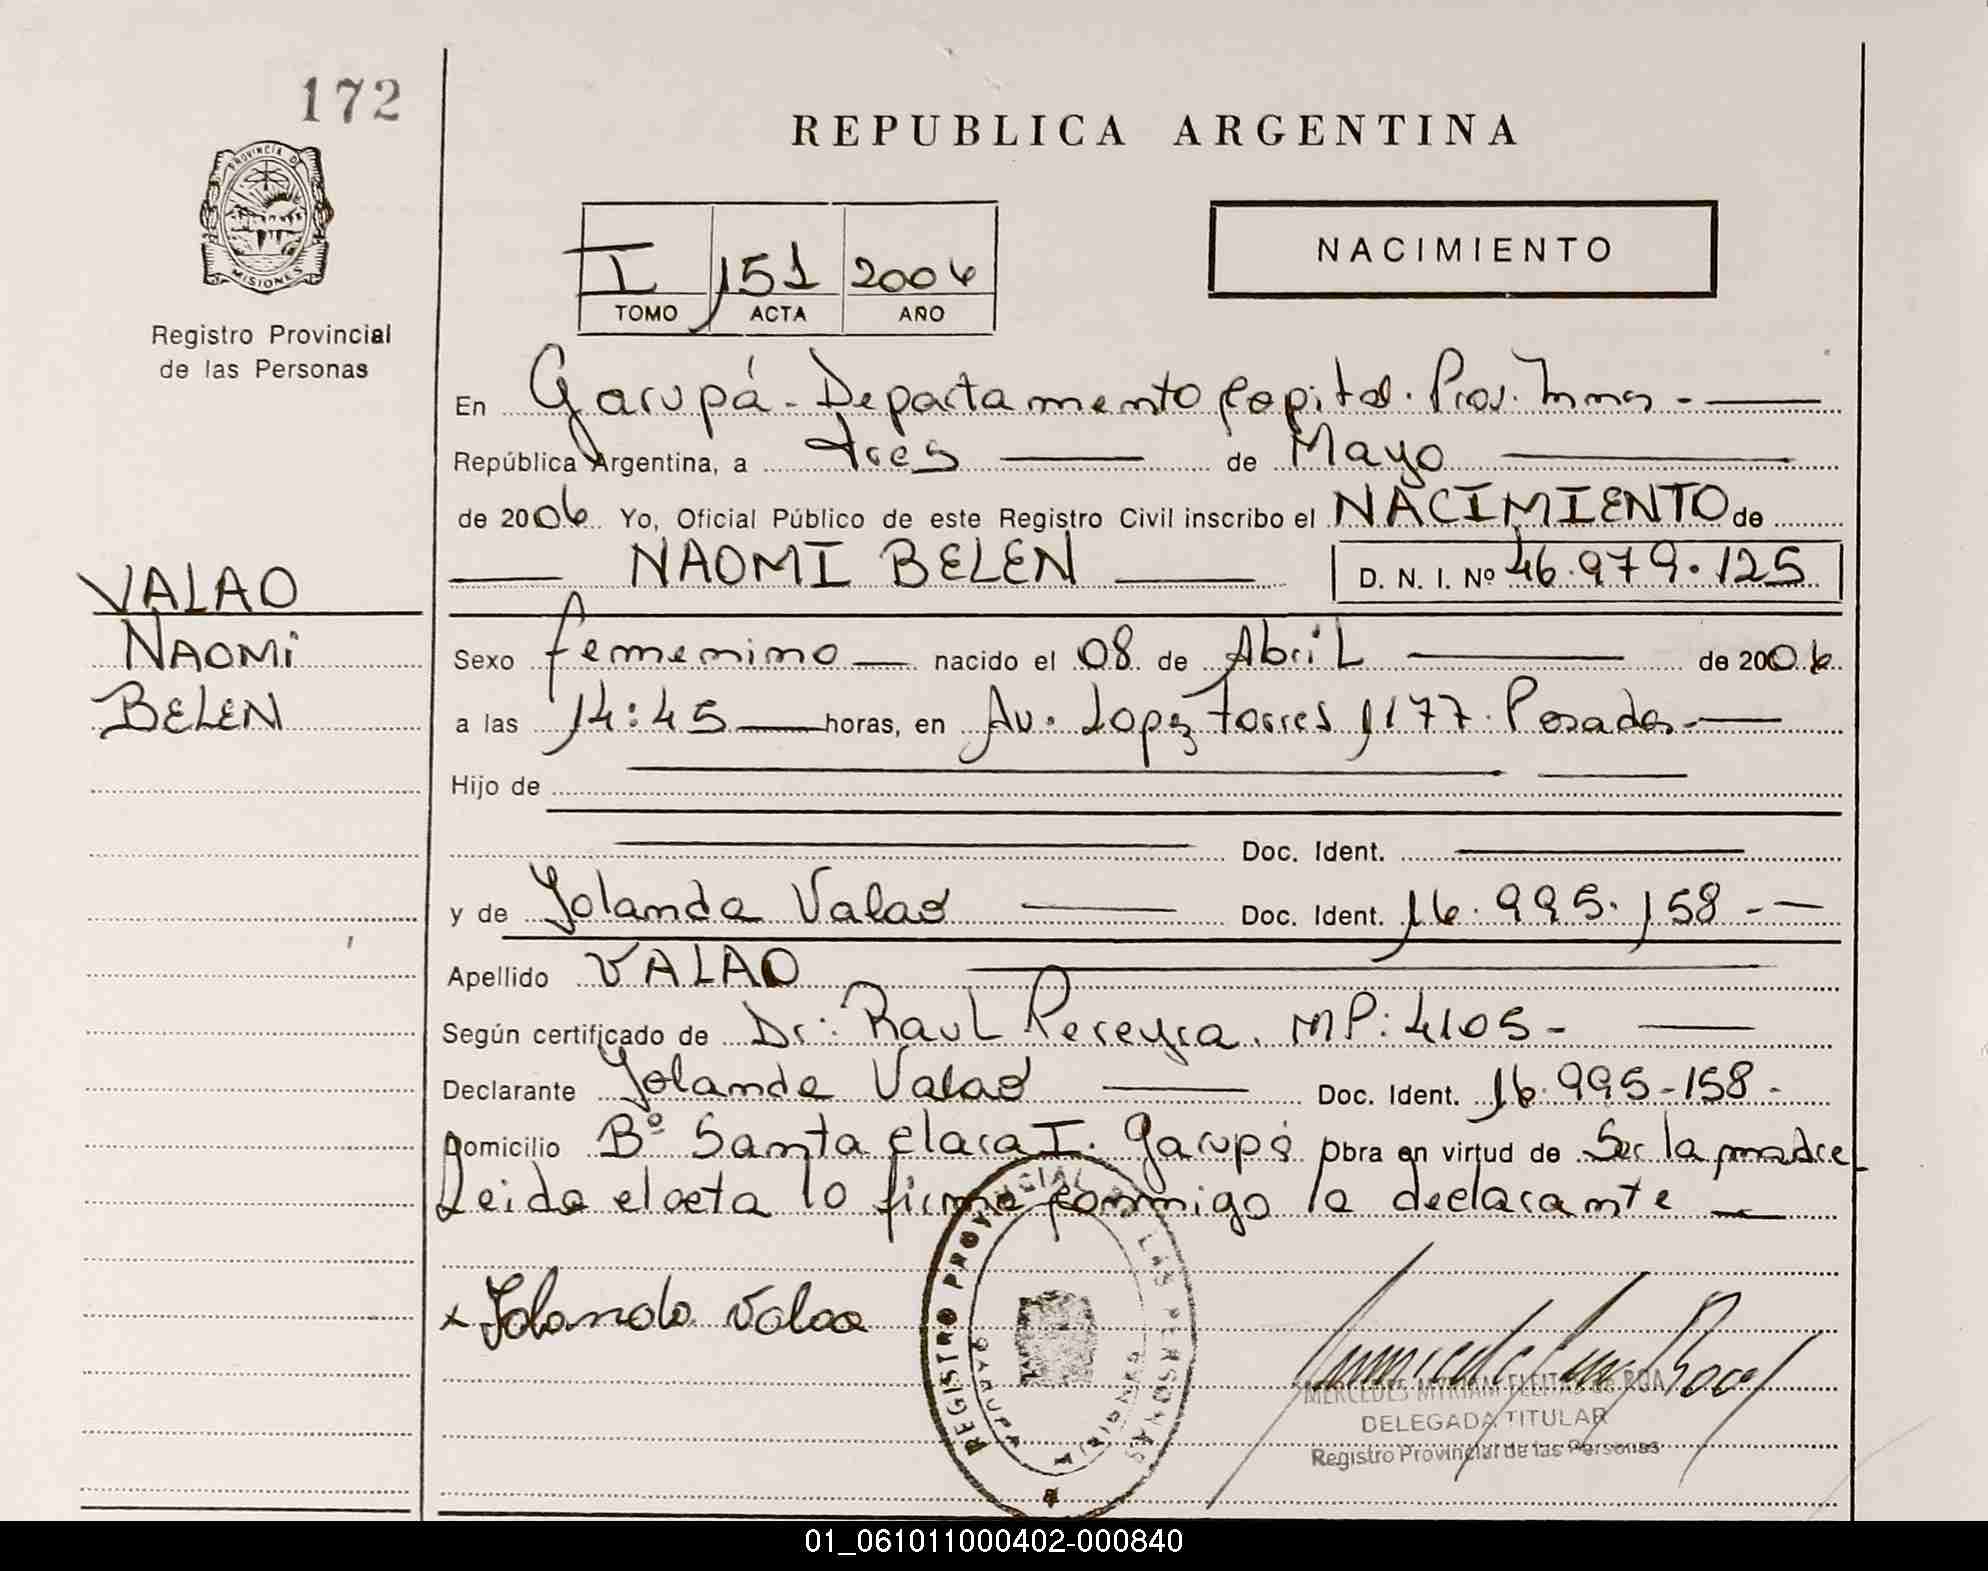 172
REPUBLICA ARGENTINA
PROVINCIA D
MISIONES
Registro Provincial
de las Personas
I 151 2006
TOMO ACTA AÑO
NACIMIENTO
En Garupá - Departamento Capital. Prov. Mnes -
República Argentina, a tres de Mayo
de 2006 Yo, Oficial Público de este Registro Civil inscribo el NACIMIENTO de
NAOMI BELEN D. N. I. Nº 46.979.125
VALAO
NAOMi
BELEN
Sexo femenino nacido el 08 de Abril de 2006
a las 14:45 horas, en Av. Lopez Torres 1177. Posadas -
Hijo de
Doc. Ident.
y de Yolanda Valao Doc. Ident. 16.995.158 -
Apellido VALAO
Según certificado de Dr: Raul Pereyra. MP: 4105 -
Declarante Yolanda Valao Doc. Ident. 16.995-158 -
Domicilio Bº Santa Clara I. Garupá Obra en virtud de Ser la madre
Leida el acta lo firma conmigo la declarante
x Yolanda Valao
REGISTRO PROVINCIAL DE LAS PERSONAS
MERCEDES MYRIAM FLEITAS de ROA
DELEGADA TITULAR
Registro Provincial de las Personas
01_061011000402-000840